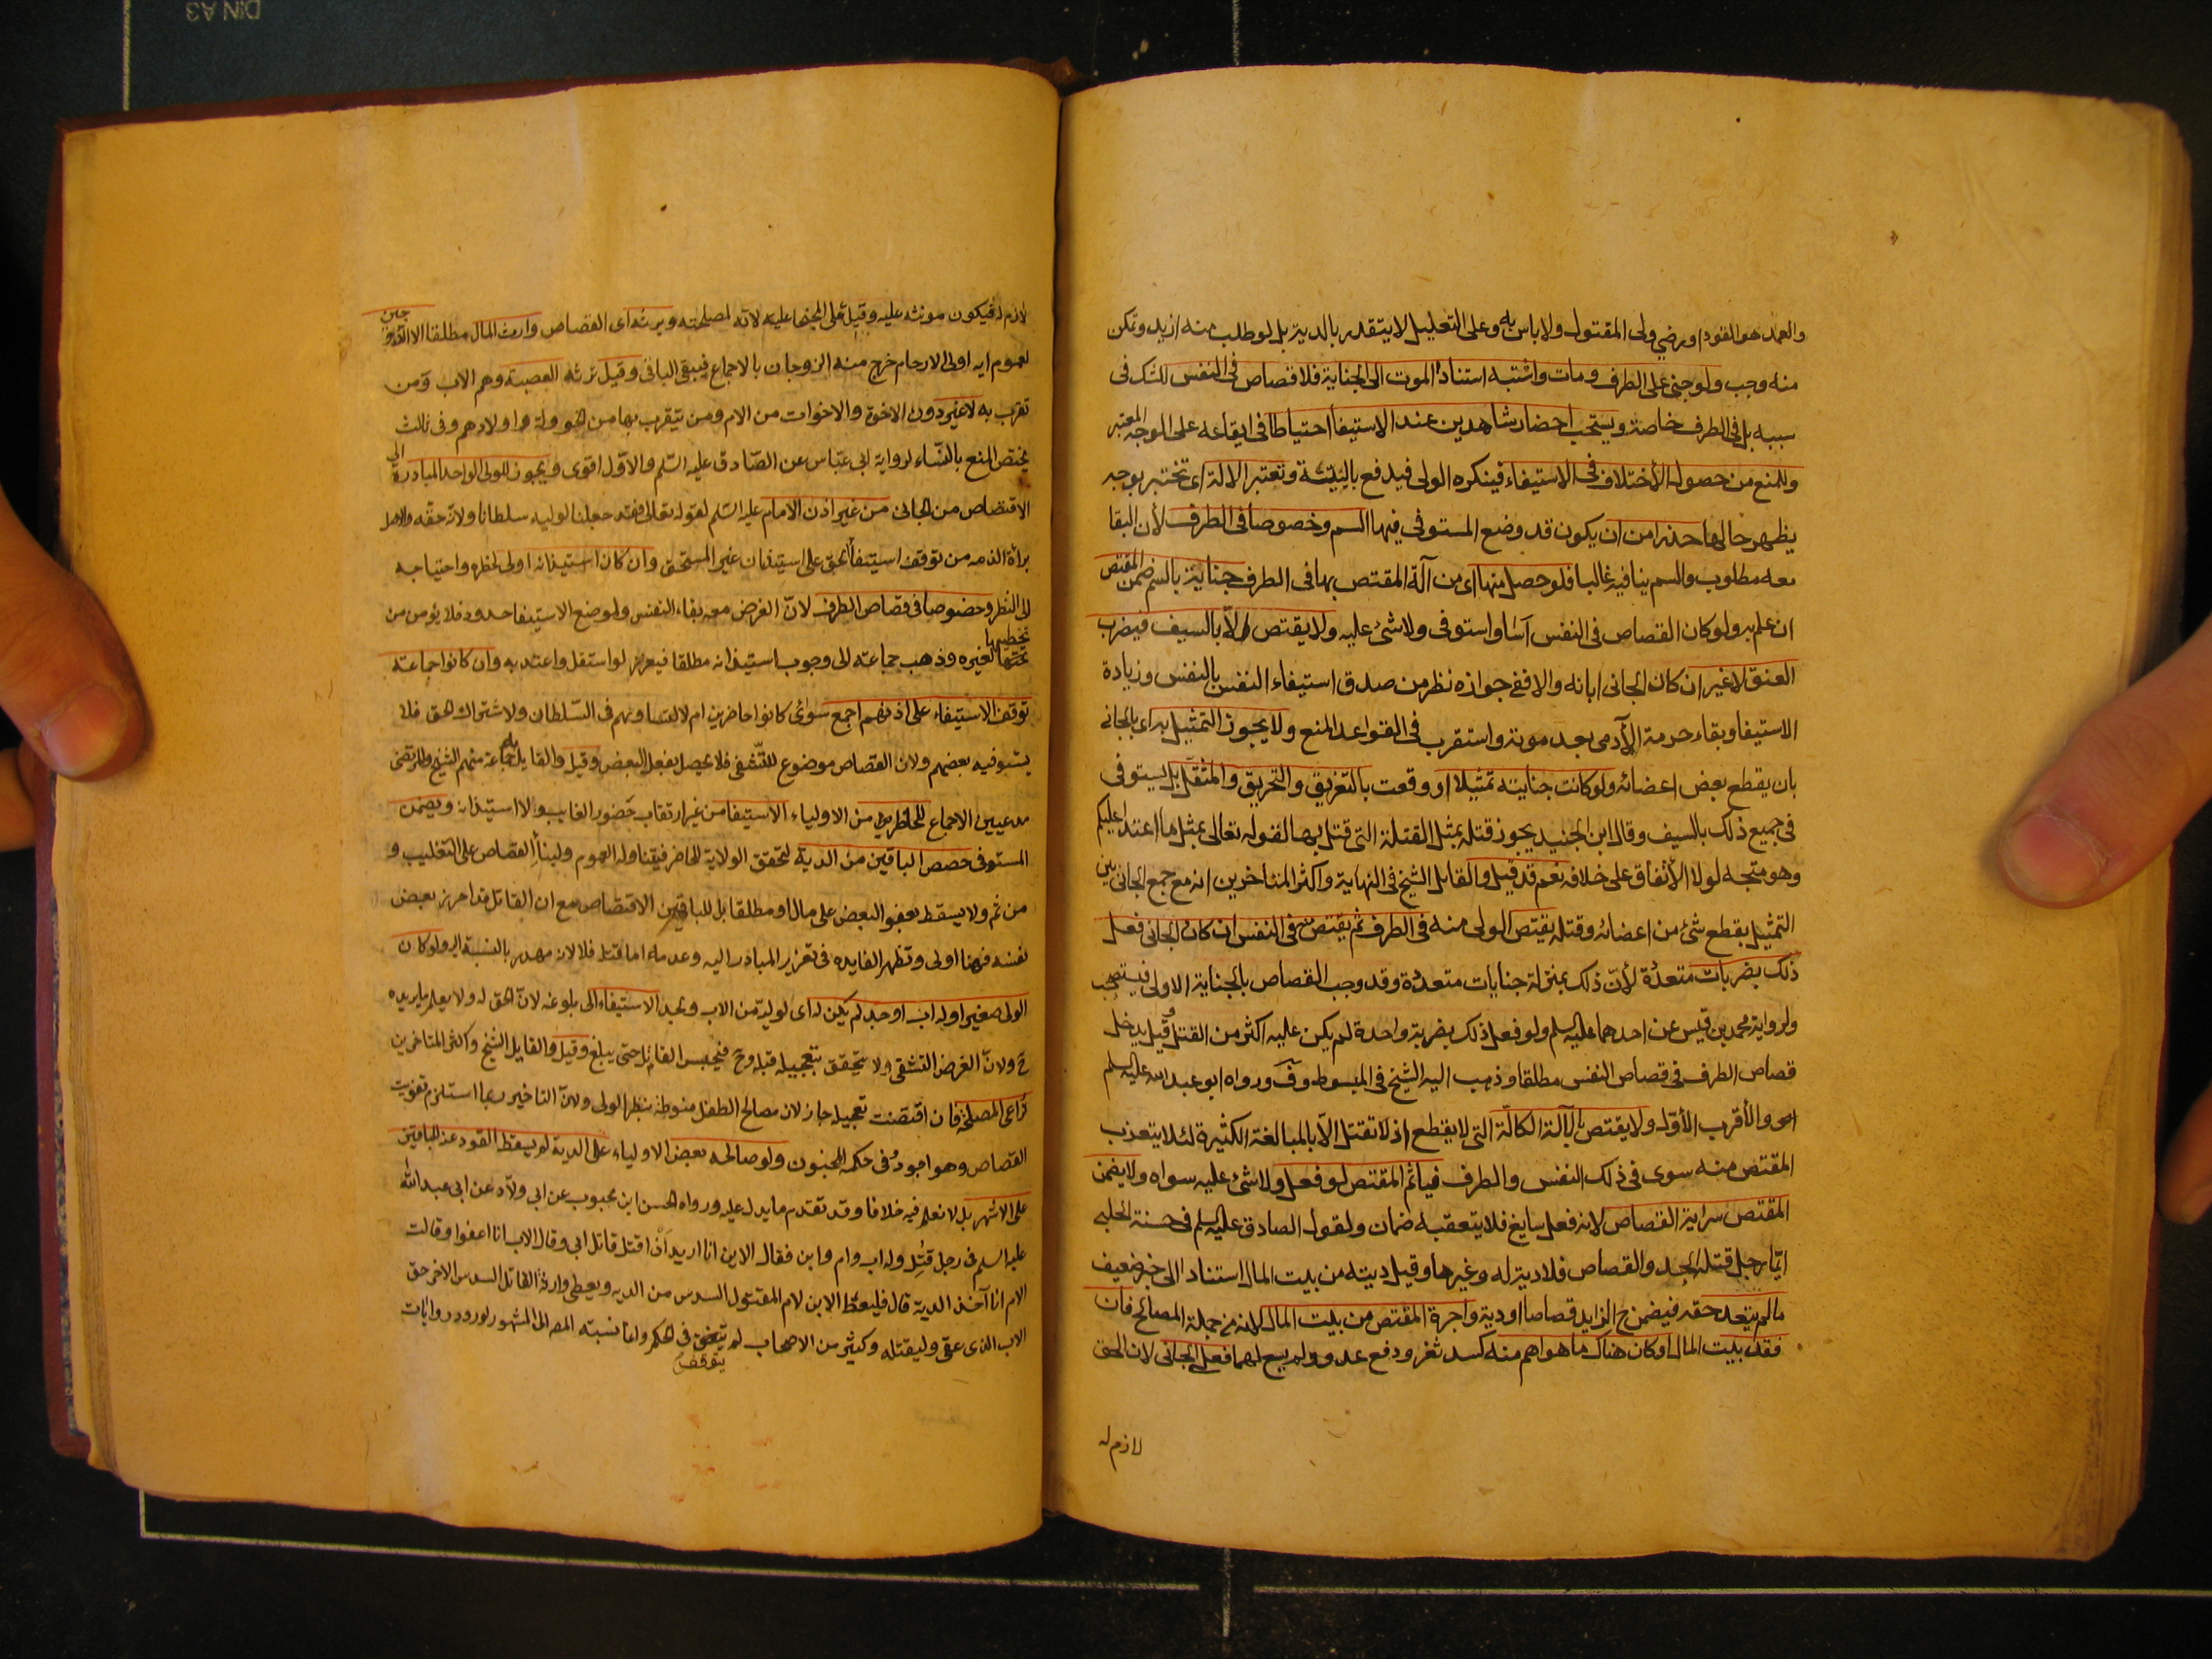 والعمد هو القود او رضي ولى المقتول ولا باس به وعلى التعليل لا يتقدر بالدية بل لو طلب منه ازيد وتمكن
منه وجب ولو جنى على الطرف ومات واشتبه استناد الموت الى الجناية فلا قصاص فى النفس للشك فى
سببه بل فى الطرف خاصة ويستحب احضار شاهدين عند الاستيفا احتياطا فى ايقاعه على الوجه المعتبر
وللمنع من حصول الأختلاف فى الاستيفاء فينكره الولى فيدفع بالبينة وتعتبر الالة اى تختبر بوجه
يظهر حالها حذرا من ان يكون قد وضع المستوفى فيها السم وخصوصا فى الطرف لأن البقا
معه مطلوب والسم ينافيه غالبا فلو حصل منها اى من آلة المقتص بها فى الطرف جناية بالسم ضمن المقتص
ان علم به ولو كان القصاص فى النفس اساء واستوفى ولا شئ عليه ولا يقتص الّا بالسيف فيضرب
العنق لا غير ان كان الجانى ابانه والا ففى جوازه نظر من صدق استيفاء النفس بالنفس وزيادة
الاستيفا وبقاء حرمة الآدمى بعد موته واستقرب فى القواعد المنع ولا يجوز التمثيل به اى بالجانى
بان يقطع بعض اعضائه ولو كانت جنايته تمثيلا او وقعت بالتغريق والتحريق والمثقل بل يستوفى
فى جميع ذلك بالسيف وقال ابن الجنيد يجوز قتله بمثل القتلة التى قتل بها لقوله تعالى بمثل ما اعتدى عليكم
وهو متجه لولا الأتفاق على خلافه نعم قد قيل والقائل الشيخ فى النهاية واكثر المتاخرين انه مع جمع الجانى بين
التمثيل بقطع شئ من اعضائه وقتله يقتص الولى منه فى الطرف ثم يقتص فى النفس ان كان الجانى فعل
ذلك بضربات متعددة لأنّ ذلك بمنزلة جنايات متعددة وقد وجب القصاص بالجناية الاولى فيستصحب
ولرواية محمد بن قيس عن احدهما عليه السلم ولو فعل ذلك بضربة واحدة لم يكن عليه اكثر من القتل وقيل يدخل
قصاص الطرف فى قصاص النفس مطلقا وذهب اليه الشيخ فى المبسوط وف ورواه ابو عبد الله عليه السلم
والأقرب الأوّل ولا يقتص بالآلة الكالّة التى لا يقطع اذ لا تقتل الّا بالمبالغة الكثيرة لئلا يتعذب
المقتص منه سوى فى ذلك النفس والطرف فياثم المقتص لو فعل ولا شئ عليه سواه ولا يضمن
المقتص سراية القصاص لانه فعل سايغ فلا يتعقبه ضمان ولقول الصادق عليه السلم فى حسنة الحلبى
ايّما رجل قتله الحد والقصاص فلا دية له وغيرها وقيل ديته من بيت المال استنادا الى خبر ضعيف
مالم يتعد حقه فيضمن ح الزايد قصاصا او دية واجرة المقتص من بيت المال لانه من جملة المصالح فان
فقد بيت المال او كان هناك ما هو اهم منه كسد ثغر ودفع عدو ولم يسع لهما فعلى الجانى لان الحق
لازم له
لازم له فيكون مؤنثه عليه وقيل على المجنى عليه لانه لمصلحته ويرثه اى القصاص وارث المال مطلقا الا الزوجين
لعموم ايه اولى الارحام خرج منه الزوجان بالاجماع فيبقى الباقى وقيل ترثه العصبة وهم الاب ومن
تقرب به لا غير دون الاخوة والاخوات من الام ومن يتقرب بها من الخوولة واولادهم وفى ثالث
يختص المنع بالنساء لرواية ابى عبّاس عن الصّادق عليه السّلم والاوّل اقوى ويجوز للولى الواحد المبادرة الى
الاقتصاص من الجانى من غير اذن الامام عليه السّلم لقوله تعالى فقد جعلنا لوليه سلطانا ولانه حقه والاصل
براءة الذمه من توقف استيفاء الحق على استيذان غير المستحق وان كان استيذانه اولى لخطره واحتياجه
الى النظر وخصوصا فى قصاص الطرف لانّ الغرض معه بقاء النفس ولموضع الاستيفا حدود فلا يؤمن من
تخطيها لغيره وذهب جماعة الى وجوب استيذانه مطلقا فيعزر لو استقل واعتد به وان كانوا جماعة
توقف الاستيفاء على اذنهم اجمع سوائ كانوا حاضرين ام لا لتساويهم فى السّلطان ولاشتراك الحق فلا
يستوفيه بعضهم ولان القصاص موضوع للتّشفى فلا يحصل بفعل البعض وقيل والقايل به جماعة منهم الشيخ والمرتضى
مدعيين الاجماع للحاضر من الاولياء الاستيفا من غير ارتقاب حضور الغايب ولا استيذانه ويضمن
المستوفى حصص الباقين من الدية لتحقق الولاية للحاضر فيتناوله العموم ولبناء القصاص على التغليب و
من ثم ولا يسقط بعفو البعض على مال او مطلقا بل للباقين الاقتصاص مع ان القاتل قد احرز بعض
نفسه فهنا اولى وتظهر الفايده فى تعزير المبادر اليه وعدمه اما قتله فلا لانه مهدر بالنسبة اليه ولو كان
الولى صغير او له اب او جد لم يكن له اى لوليه من الاب والجد الاستيفاء الى بلوغه لانّ الحق له ولا يعلم ما يريده
ح ولانّ الغرض التشفى ولا يتحقق بتعجيله قبله وح فيحبس القاتل حتى يبلغ وقيل والقايل الشيخ واكثر المتاخرين
تراعى المصلحة فان اقتضت تعجيله جاز لان مصالح الطفل منوطة بنظر الولى ولانّ التاخير ربما استلزم تفويت
القصاص وهو اجود وفى حكمه المجنون ولو صالحه بعض الاولياء على الدية لم يسقط القود عنه للباقين
على الاشهر بل لا نعلم فيه خلافا وقد تقدم ما يدل عليه ورواه الحسن ابن محبوب عن ابى ولاد عن ابى عبد الله
عليه السلم فى رجل قُتِل وله اب وام وابن فقال الابن انا اريد ان اقتل قاتل ابى وقال الاب انا اعفوا وقالت
الام انا آخذ الدية قال فليعط الابن لام المقتول السدس من الديه ويعطى ورثة القاتل السدس الاخر حق
الاب الذى عفى وليقتله وكثير من الاصحاب لم يتوقف فى الحكم وانما نسبته المص الى المشهور لورود روايات
يتوقف